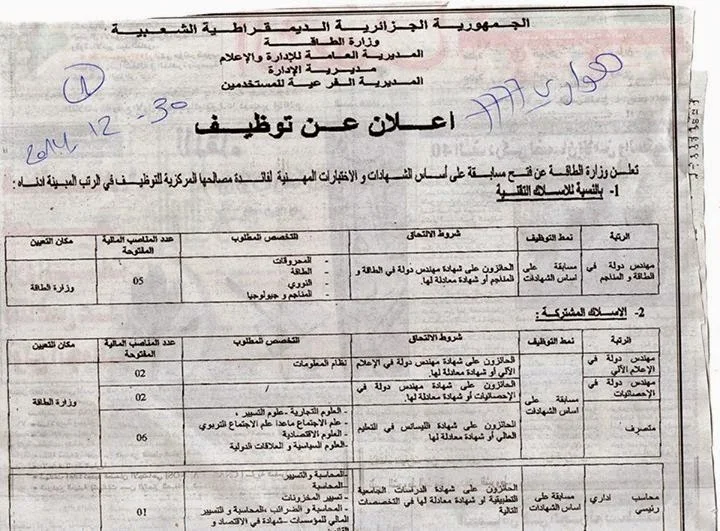 الجمهورية الجزائرية الديمقراطية الشعبية
وزارة الطاقة
المديرية العامة للإدارة والإعلام
مديرية الإدارة
المديرية الفرعية للمستخدمين
1
2014. 12 - 30
الهواري 777
اعلان عن توظيف
تعلن وزارة الطاقة عن فتح مسابقة على أساس الشهادات و الاختبارات المهنية لفائدة مصالحها المركزية للتوظيف في الرتب المبينة ادناه :
1- بالنسبة للاسلاك التقنية
الرتبة نمط التوظيف شروط الالتحاق التخصص المطلوب عدد المناصب المالية المفتوحة مكان التعيين
مهندس دولة في الطاقة و المناجم
مسابقة على اساس الشهادات
الحائزون على شهادة مهندس دولة في الطاقة و المناجم أو شهادة معادلة لها.
- المحروقات
- الطاقة
- النووي
- المناجم و جيولوجيا
05
وزارة الطاقة
2- الاسلاك المشتركة :
الرتبة نمط التوظيف شروط الالتحاق التخصص المطلوب عدد المناصب المالية المفتوحة مكان التعيين
مهندس دولة في الإعلام الآلي
الحائزون على شهادة مهندس دولة في الإعلام الآلي أو شهادة معادلة لها.
نظام المعلومات
02
مهندس دولة في الإحصائيات
الحائزون على شهادة مهندس دولة في الإحصائيات أو شهادة معادلة لها.
/
02
وزارة الطاقة
متصرف
مسابقة على اساس الشهادات
الحائزون على شهادة الليسانس في التعليم العالي أو شهادة معادلة لها.
- العلوم التجارية -علوم التسيير ،
- علم الاجتماع ماعدا علم الاجتماع التربوي
- العلوم الاقتصادية
- العلوم السياسية و العلاقات الدولية
06
محاسب اداري رئيسي
مسابقة على اساس الشهادات
الحائزون على شهادة الدرسات الجامعية التطبيقية أو شهادة معادلة لها في التخصصات التالية
-المحاسبة والتسيير
-المحاسبة
- تسيير المخزونات
- المحاسبة و الضرائب -المحاسبة و التسيير
المالي للمؤسسات -شهادة في الاقتصاد و
01